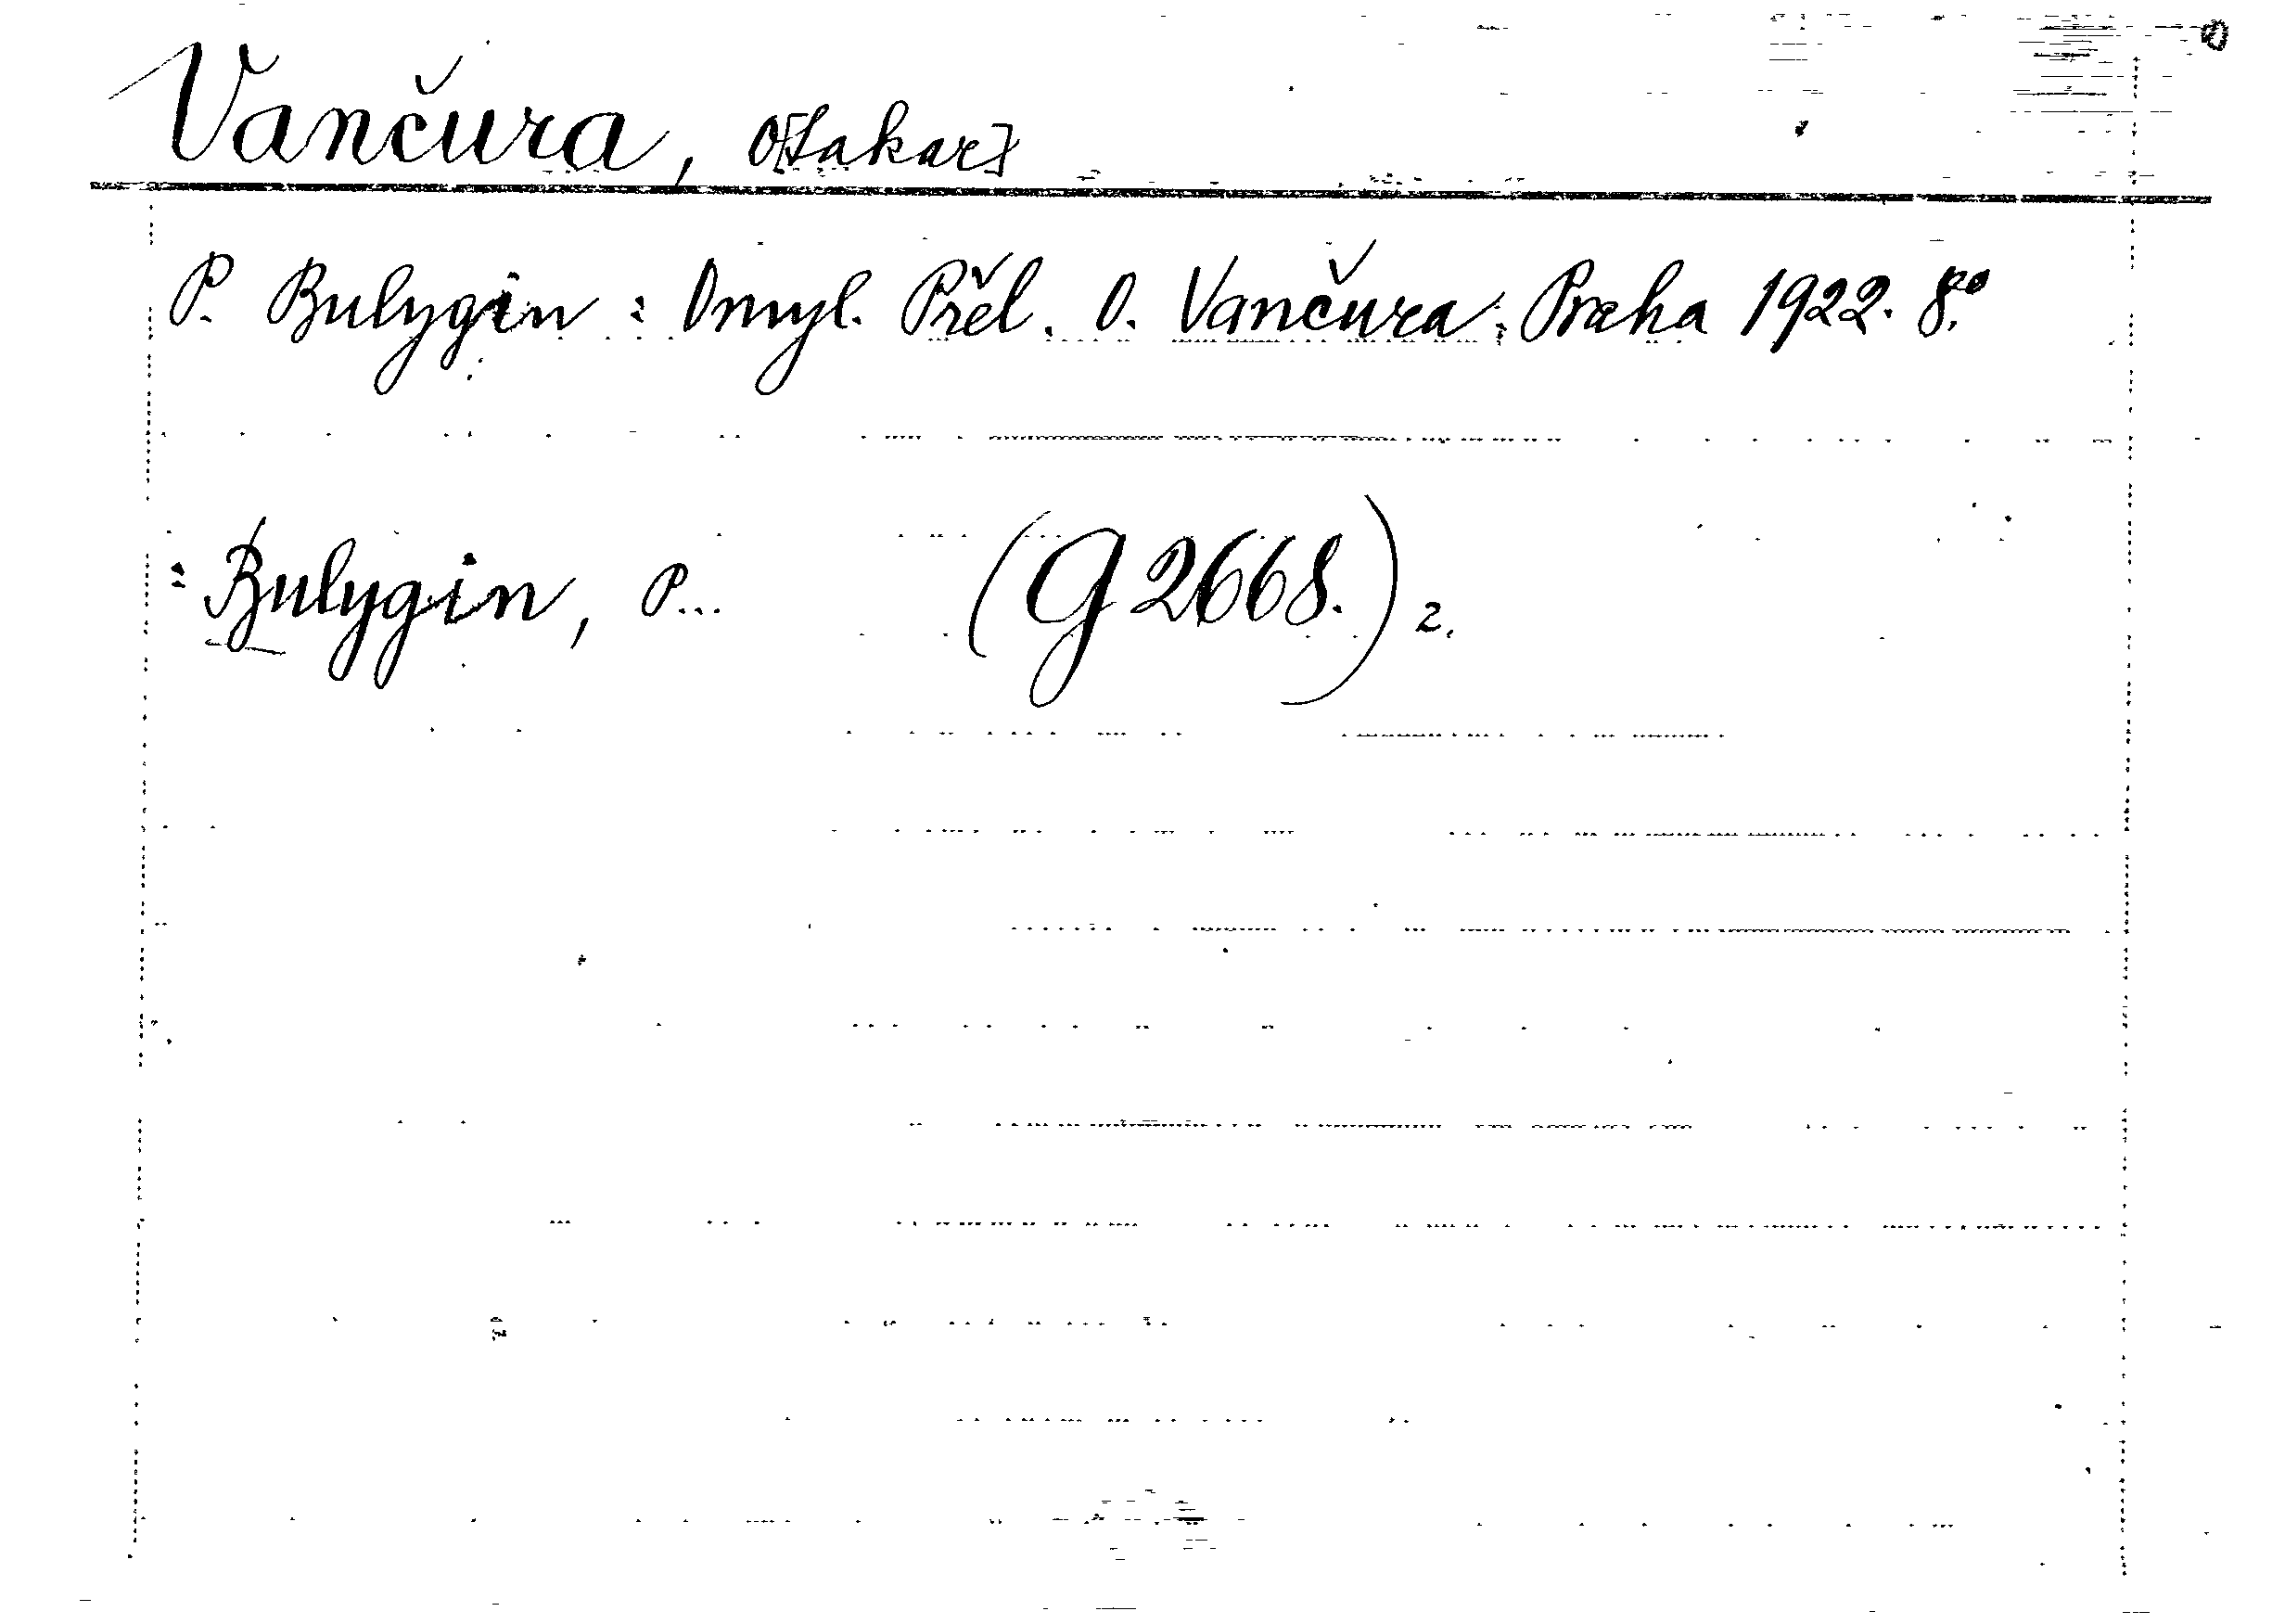 Vančura, O[takar]
P. Bulygin: Omyl. Přel. O. Vančura. Praha 1922. 8.º
: Bulygin, P... (G 2668.) 2.